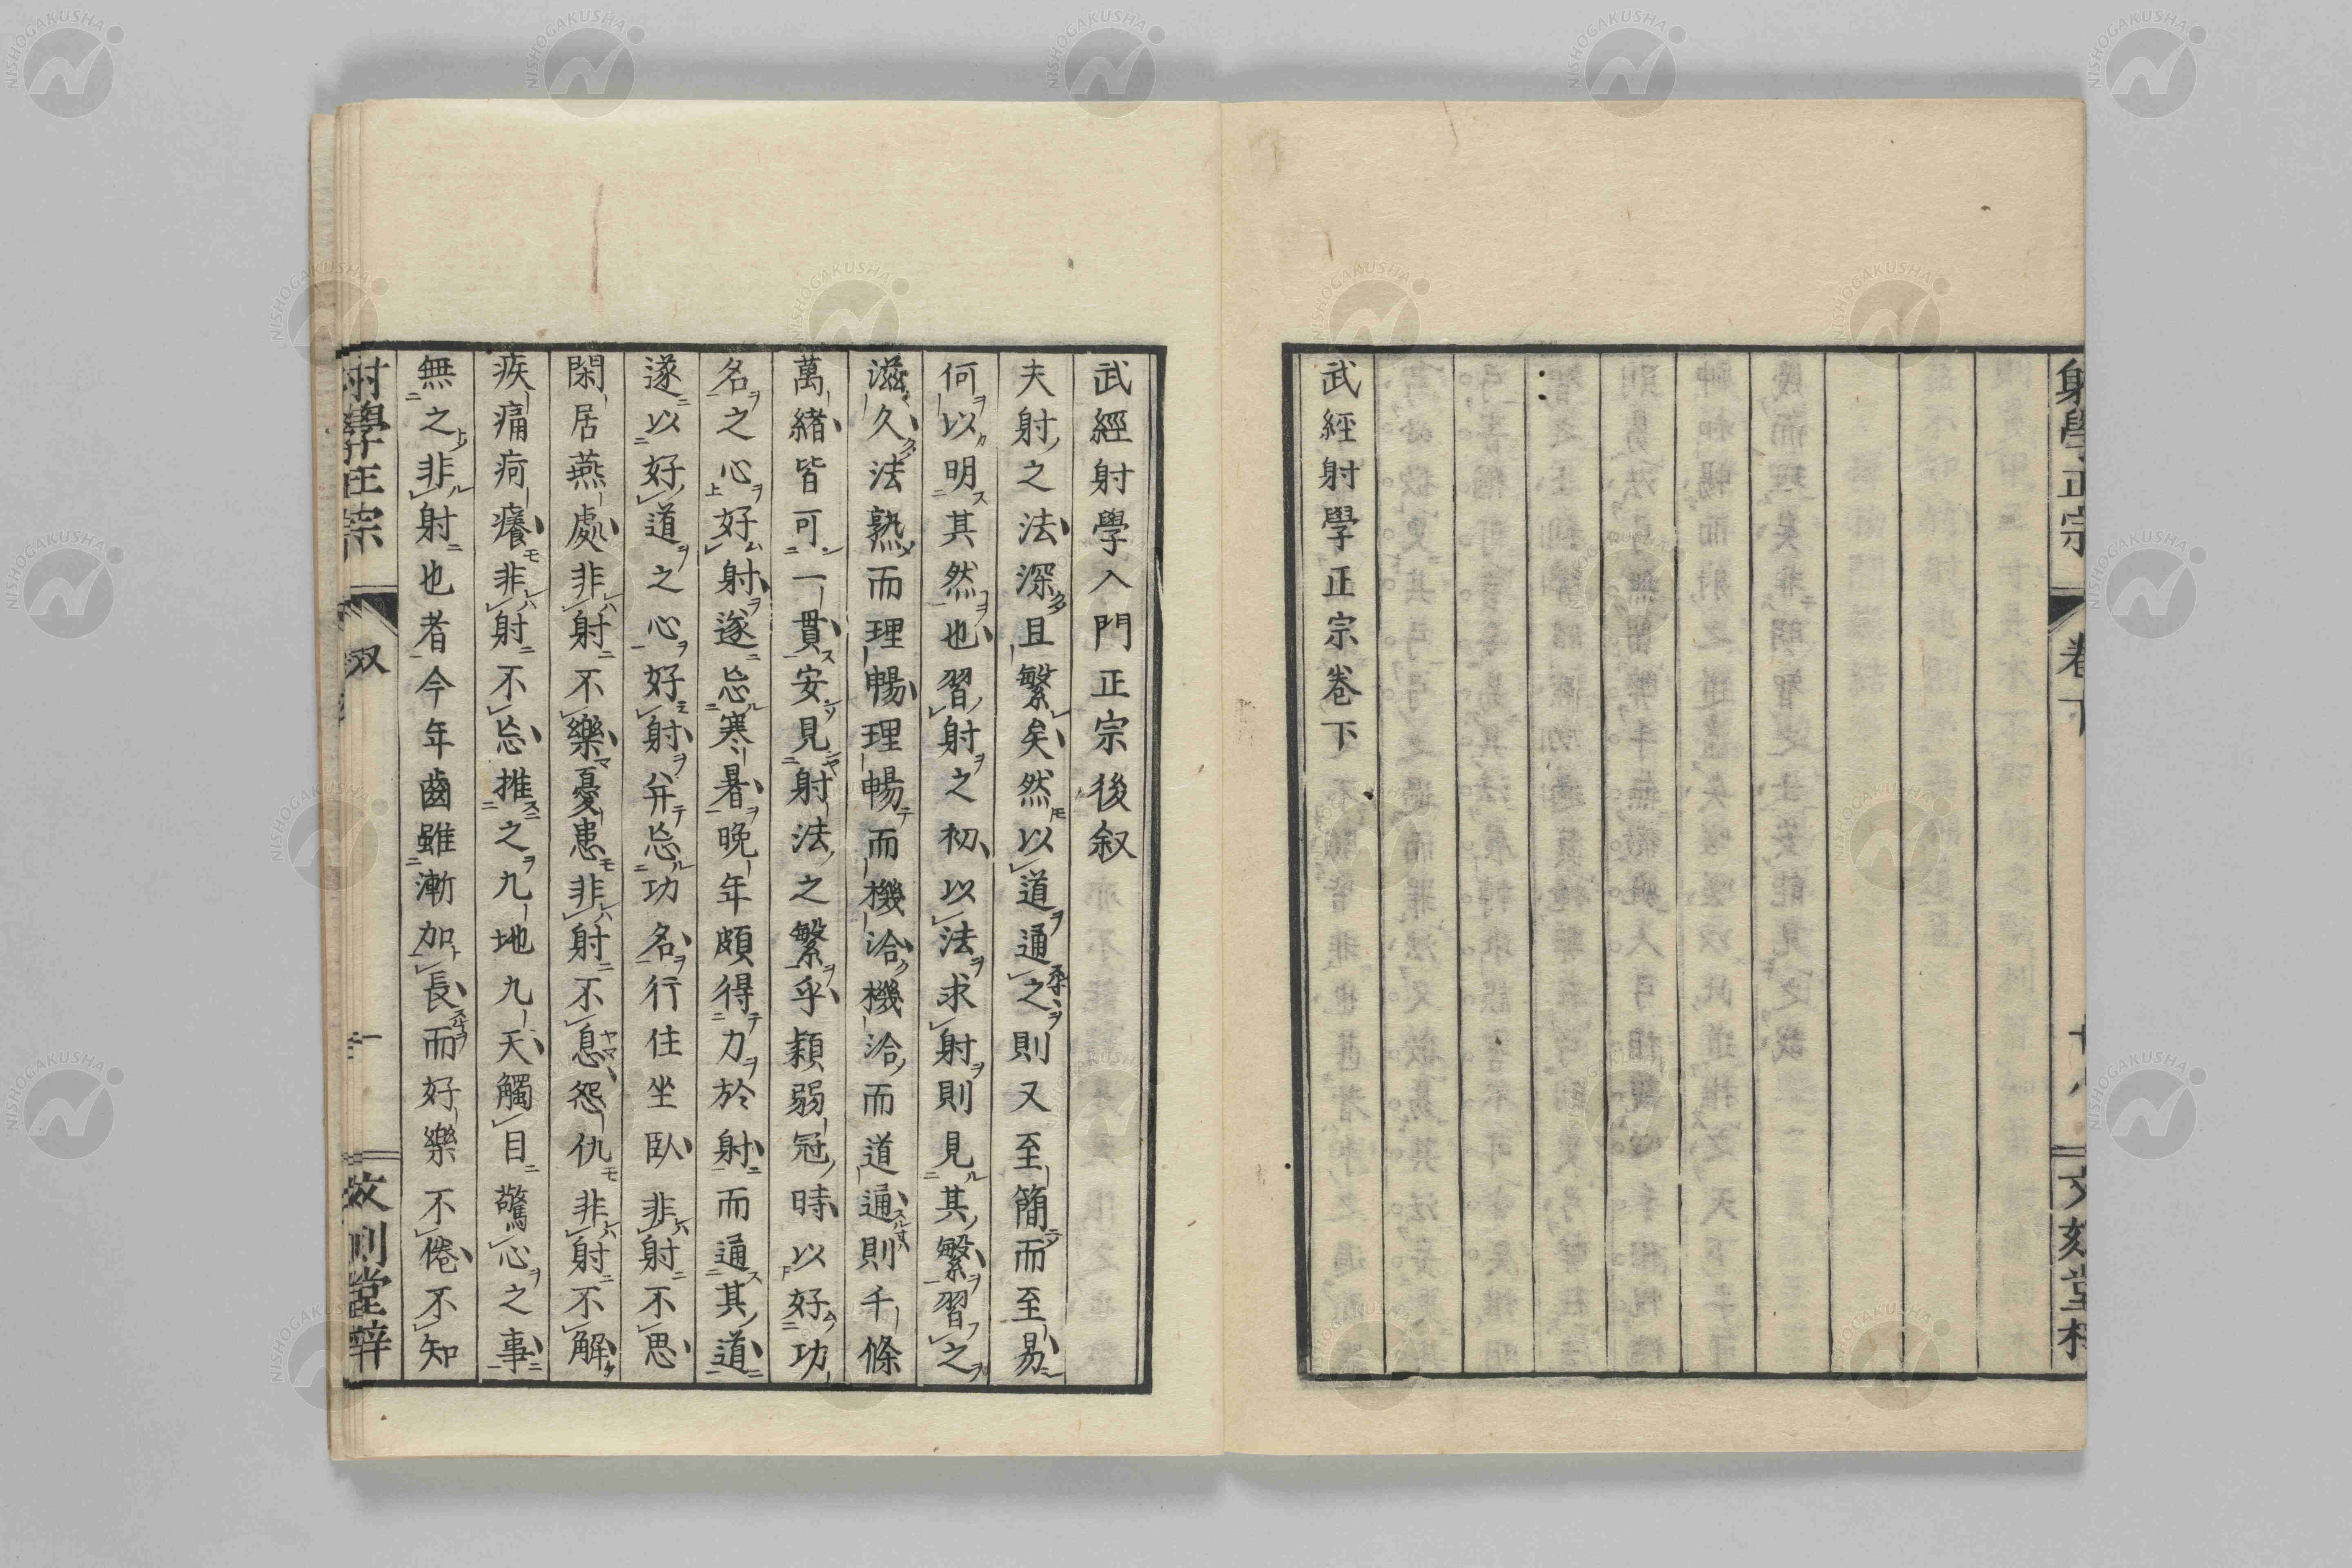 射學正宗
卷下
十八
文刻堂梓
武經射學正宗卷下
武經射學入門正宗後叙
夫射之法深且繁矣然以道通之則又至簡而至易
何以明其然也習射之初以法求射則見其繁習之
滋久法熟而理暢理暢而機洽機洽而道通則千條
萬緒皆可一貫安見射法之繁乎穎弱冠時以好功
名之心好射遂忘寒暑晚年頗得力於射而通其道
遂以好道之心好射并忘功名行住坐臥非射不思
閑居燕處非射不樂憂患非射不息怨仇非射不解
疾痛疴癢非射不忘推之九地九天觸目驚心之事
無之非射也者今年齒雖漸加長而好樂不倦不知
射學正宗
叙
一
文刻堂梓
NISHOGAKUSHA